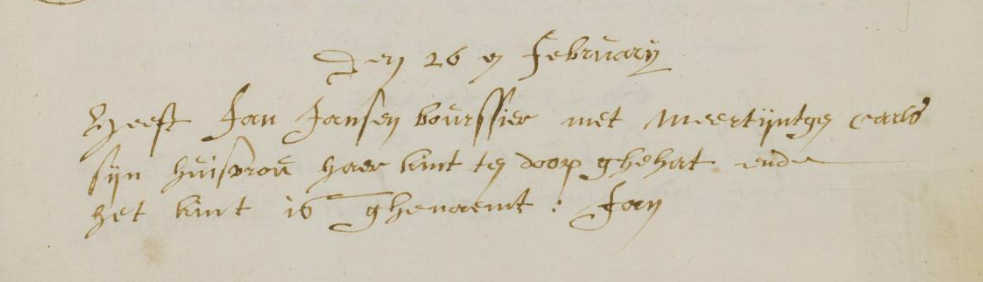 Den 26 en february
Heeft Jan Jansen bourssier met meertijntgen carls
sijn huisvrou haer kint ten doop ghehat ende
het kint is ghenaemt : Jan